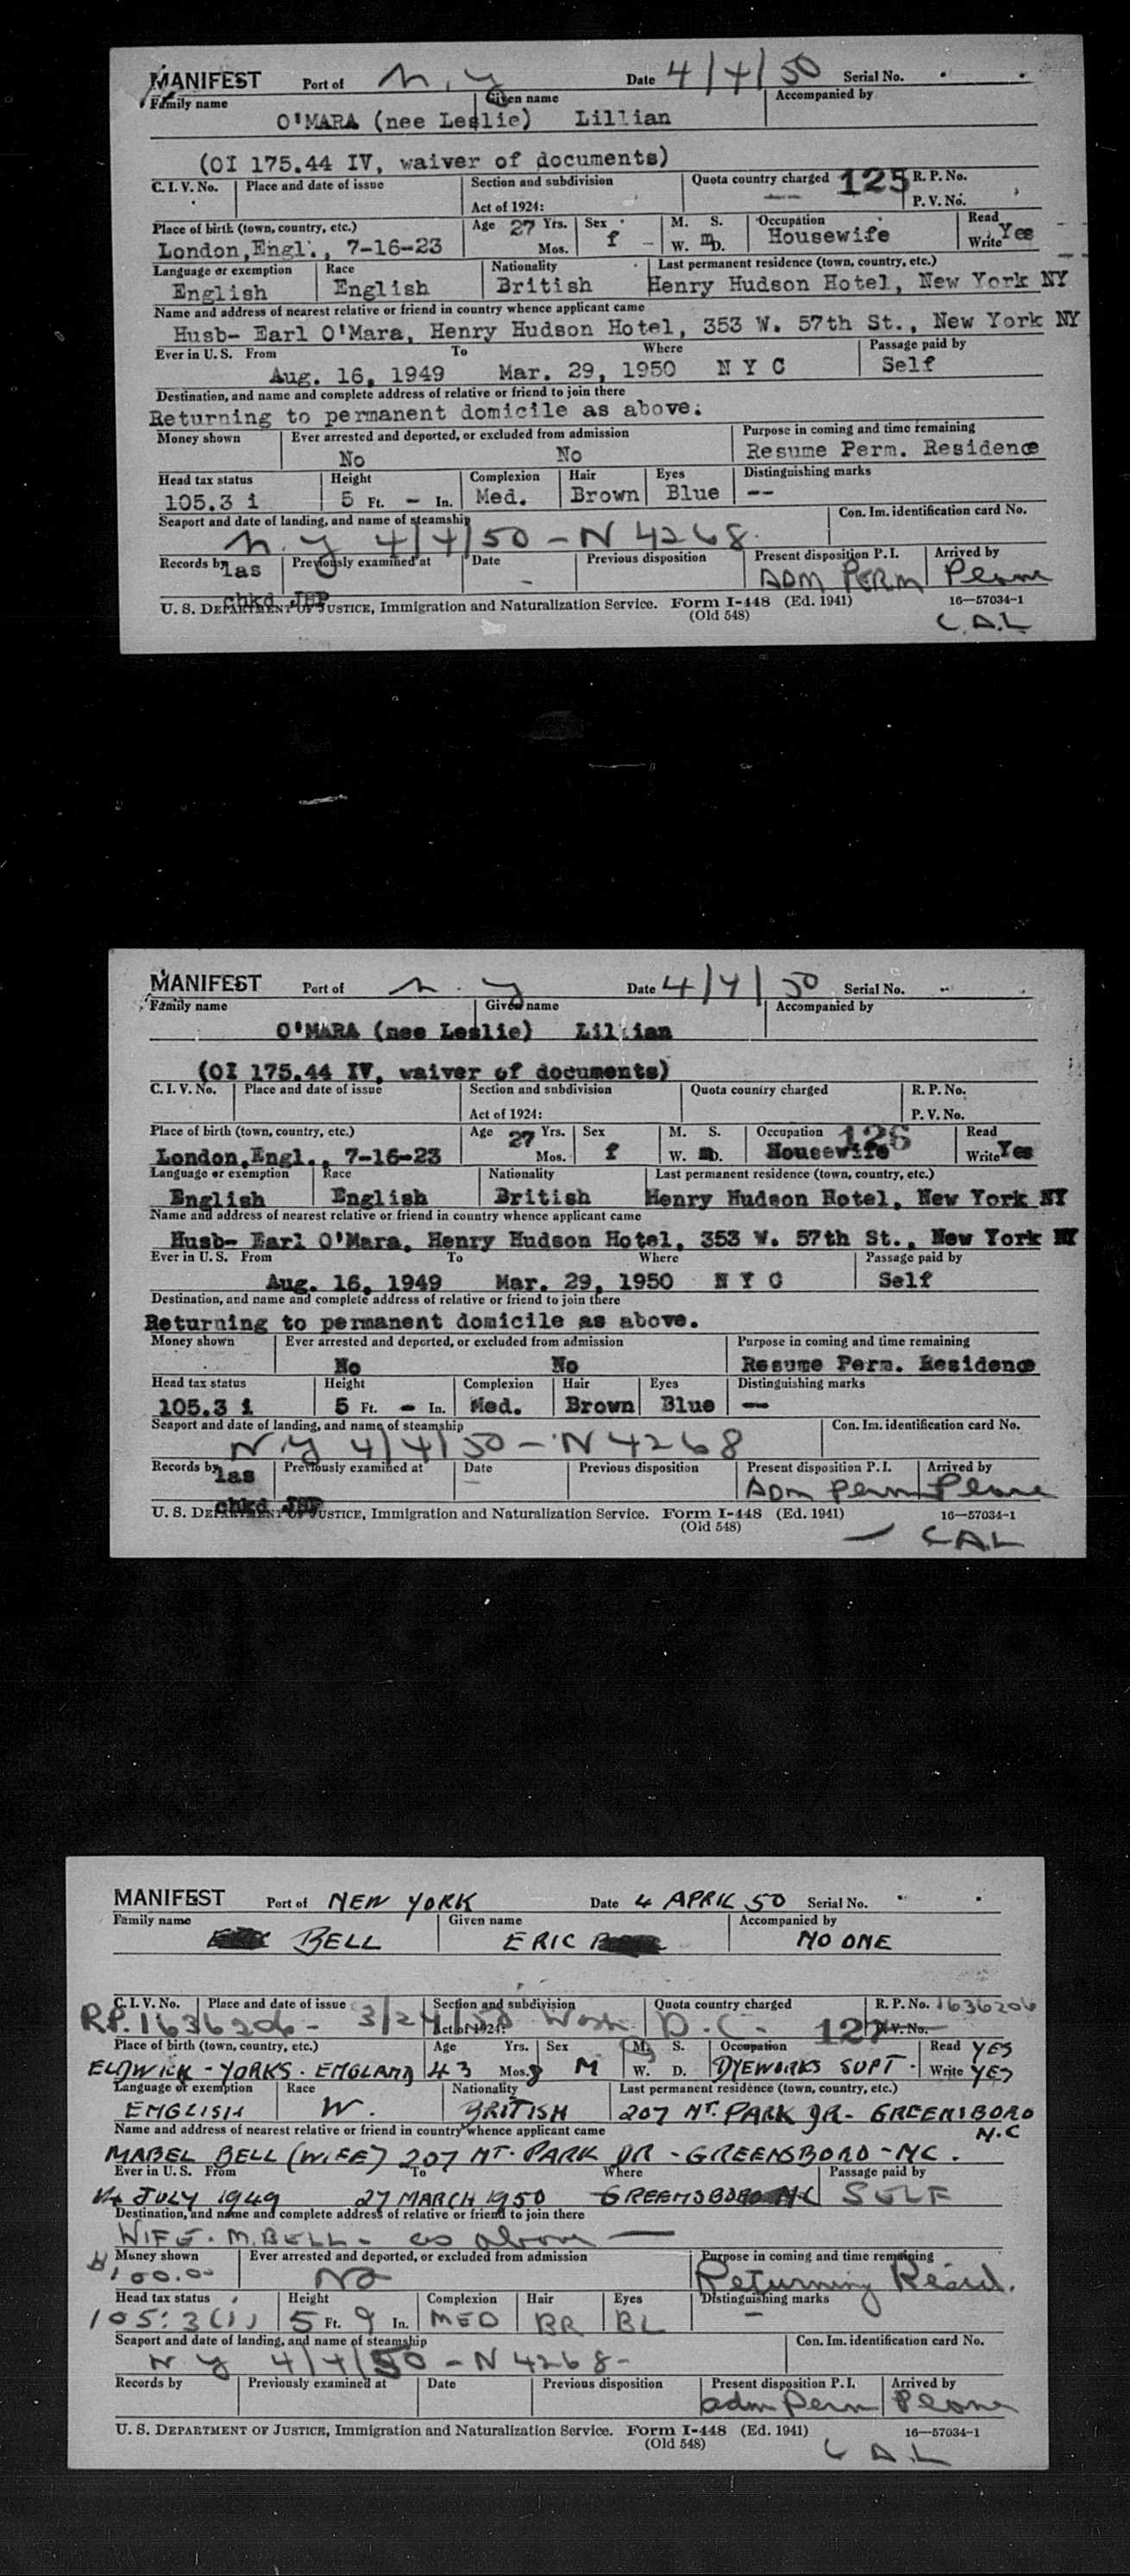 MANIFEST Port of N.Y Date 4/4/50 Serial No.
Family name Given name Accompanied by
O'MARA (nee Leslie) Lillian
(OI 175.44 IV, waiver of documents)
C. I. V. No. Place and date of issue Section and subdivision Quota country charged 125 R. P. No.
Act of 1924: P. V. No.
Place of birth (town, country, etc.) Age 27 Yrs. Sex M. S. Occupation Read
London,Engl., 7-16-23 Mos. f W. m D. Housewife Write Yes
Language or exemption Race Nationality Last permanent residence (town, country, etc.)
English English British Henry Hudson Hotel, New York NY
Name and address of nearest relative or friend in country whence applicant came
Husb- Earl O'Mara, Henry Hudson Hotel, 353 W. 57th St., New York NY
Ever in U. S. From To Where Passage paid by
Aug. 16, 1949 Mar. 29, 1950 N Y C Self
Destination, and name and complete address of relative or friend to join there
Returning to permanent domicile as above.
Money shown Ever arrested and deported, or excluded from admission Purpose in coming and time remaining
No No Resume Perm. Residence
Head tax status Height Complexion Hair Eyes Distinguishing marks
105.3 i 5 Ft. - In. Med. Brown Blue --
Seaport and date of landing, and name of steamship Con. Im. identification card No.
N.Y 4/4/50 - N 4268
Records by las Previously examined at Date Previous disposition Present disposition P. I. Arrived by
ADM PERM Plane
chkd JEP
U. S. DEPARTMENT OF JUSTICE, Immigration and Naturalization Service. Form I-448 (Ed. 1941) 16—57034-1
(Old 548) C.A.L
MANIFEST Port of N.Y Date 4/4/50 Serial No.
Family name Given name Accompanied by
O'MARA (nee Leslie) Lillian
(OI 175.44 IV, waiver of documents)
C. I. V. No. Place and date of issue Section and subdivision Quota country charged R. P. No.
Act of 1924: P. V. No.
Place of birth (town, country, etc.) Age 27 Yrs. Sex M. S. Occupation 126 Read
London,Engl., 7-16-23 Mos. f W. m D. Housewife Write Yes
Language or exemption Race Nationality Last permanent residence (town, country, etc.)
English English British Henry Hudson Hotel, New York NY
Name and address of nearest relative or friend in country whence applicant came
Husb- Earl O'Mara, Henry Hudson Hotel, 353 W. 57th St., New York NY
Ever in U. S. From To Where Passage paid by
Aug. 16, 1949 Mar. 29, 1950 N Y C Self
Destination, and name and complete address of relative or friend to join there
Returning to permanent domicile as above.
Money shown Ever arrested and deported, or excluded from admission Purpose in coming and time remaining
No No Resume Perm. Residence
Head tax status Height Complexion Hair Eyes Distinguishing marks
105.3 i 5 Ft. - In. Med. Brown Blue --
Seaport and date of landing, and name of steamship Con. Im. identification card No.
N.Y 4/4/50 - N 4268
Records by las Previously examined at Date Previous disposition Present disposition P. I. Arrived by
Adm Perm Plane
chkd JEP
U. S. DEPARTMENT OF JUSTICE, Immigration and Naturalization Service. Form I-448 (Ed. 1941) 16—57034-1
(Old 548) C.A.L
MANIFEST Port of NEW YORK Date 4 APRIL 50 Serial No.
Family name Given name Accompanied by
BELL ERIC NO ONE
C. I. V. No. Place and date of issue Section and subdivision Quota country charged R. P. No. 1636206
RP. 1636206 - 3/24/50 Wash. D.C. 127 P. V. No.
Act of 1924:
Place of birth (town, country, etc.) Age Yrs. Sex M. S. Occupation Read YES
ELDWICK - YORKS. ENGLAND 43 Mos. 8 M W. D. DYEWORKS SUPT. Write YES
Language or exemption Race Nationality Last permanent residence (town, country, etc.)
ENGLISH W. BRITISH 207 MT. PARK DR - GREENSBORO N.C
Name and address of nearest relative or friend in country whence applicant came
MABEL BELL (WIFE) 207 MT. PARK DR - GREENSBORO - NC.
Ever in U. S. From To Where Passage paid by
14 JULY 1949 27 MARCH 1950 GREENSBORO NC SELF
Destination, and name and complete address of relative or friend to join there
WIFE. M. BELL - as above
Money shown Ever arrested and deported, or excluded from admission Purpose in coming and time remaining
$100.00 No Returning Resid.
Head tax status Height Complexion Hair Eyes Distinguishing marks
105:3(1) 5 Ft. 9 In. MED BR BL -
Seaport and date of landing, and name of steamship Con. Im. identification card No.
N.Y 4/4/50 - N 4268 -
Records by Previously examined at Date Previous disposition Present disposition P. I. Arrived by
adm Perm Plane
U. S. DEPARTMENT OF JUSTICE, Immigration and Naturalization Service. Form I-448 (Ed. 1941) 16—57034-1
(Old 548) C A.L